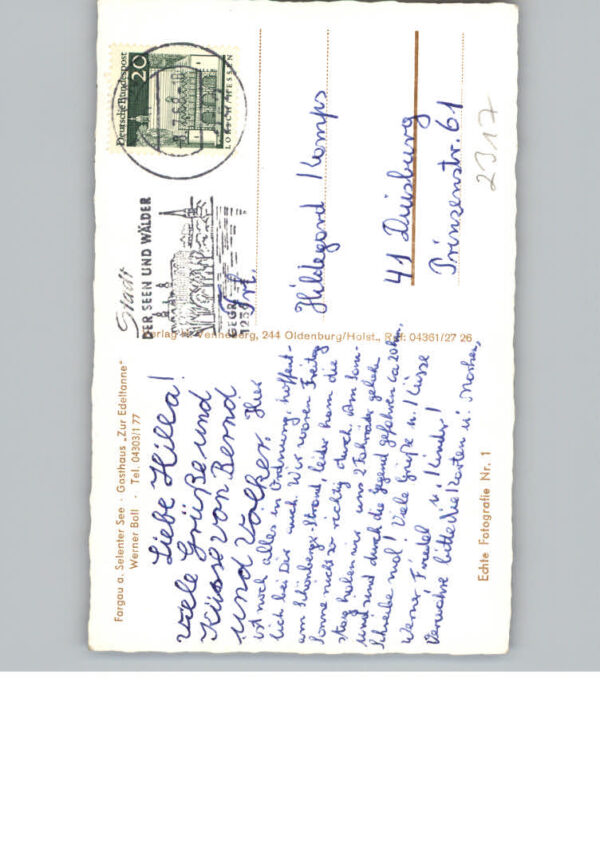 Fargau a. Selenter See · Gasthaus „Zur Edeltanne"
Werner Boll · Tel. 04303/1 77
Liebe Hilla!
Viele Grüße und
Küsse von Bernd
und Volker. Hier
ist noch alles in Ordnung, hoffent-
lich bei Dir auch. Wir waren Freitag
am Schönberge-Strand, leider kam die
Sonne nicht so richtig durch. Am Sams-
tag haben wir uns 2 Fahrräder geliehen
und sind durch die Gegend gefahren ca 20 km.
Schreibe mal! Viele Grüße u. Küsse
Werner Friedel u. Kinder!
Verwahre bitte die Karten u. Marken,
Echte Fotografie Nr. 1
Verlag H. Venneberg, 244 Oldenburg/Holst., Ruf: 04361/27 26
Deutsche Bundespost
20
LORSCH/HESSEN
Stadt
DER SEEN UND WÄLDER
GEGR.
Frl.
Hildegard Kamps
41 Duisburg
Prinzenstr. 61
2317